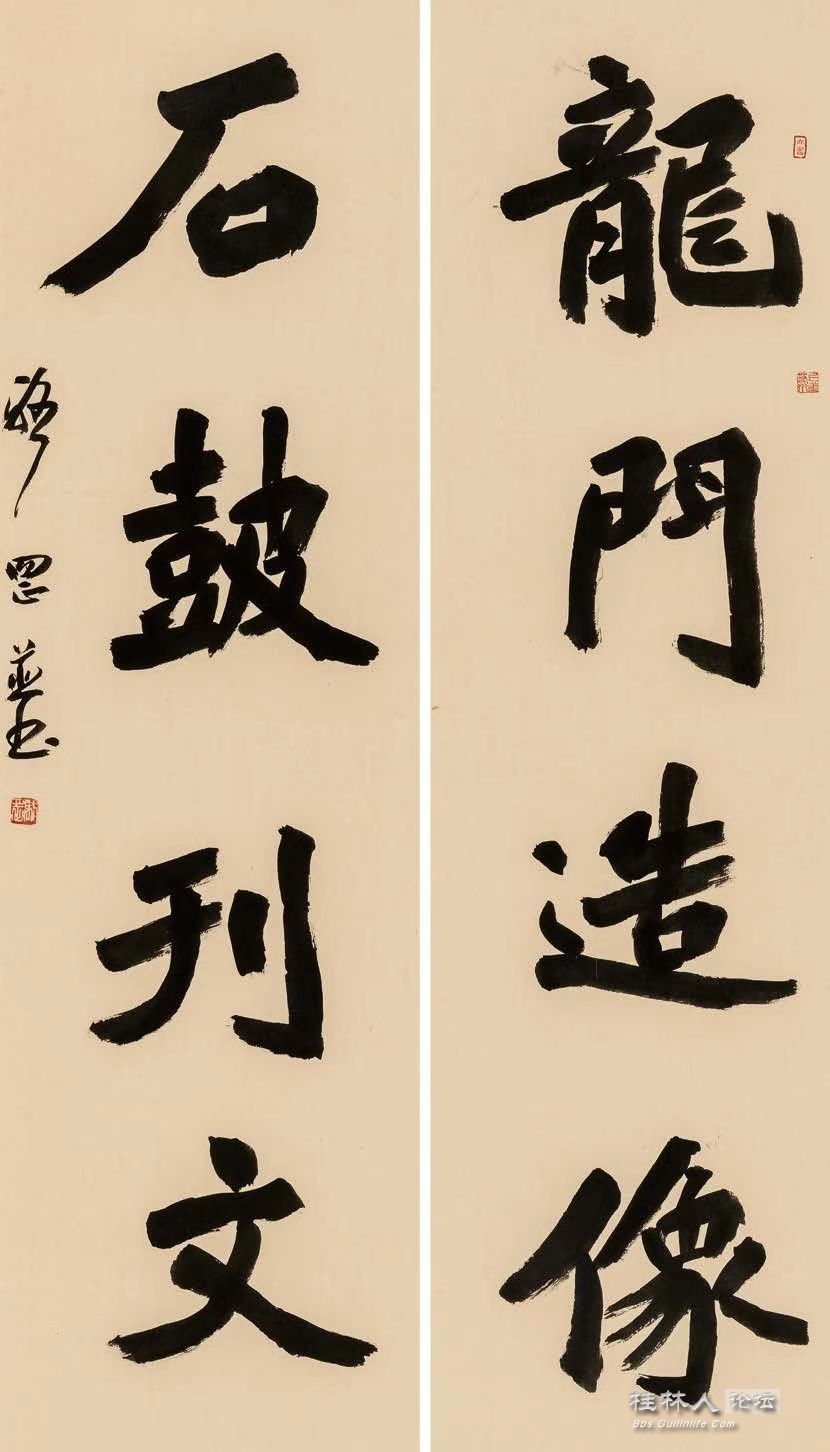 龍門造像
石鼓刊文
桂林人论坛
Bbs.Guilinlife.Com